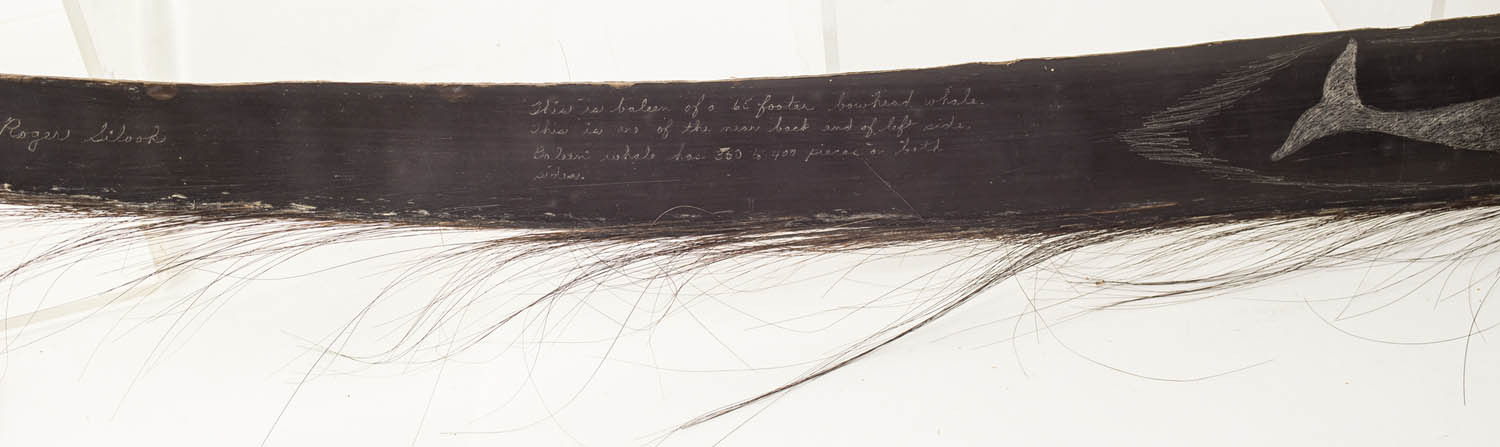 Roger Silook
This is baleen of a 65 footer bowhead whale.
This is one of the near back end of left side.
Baleen whale has 350 to 400 pieces on both
sides.